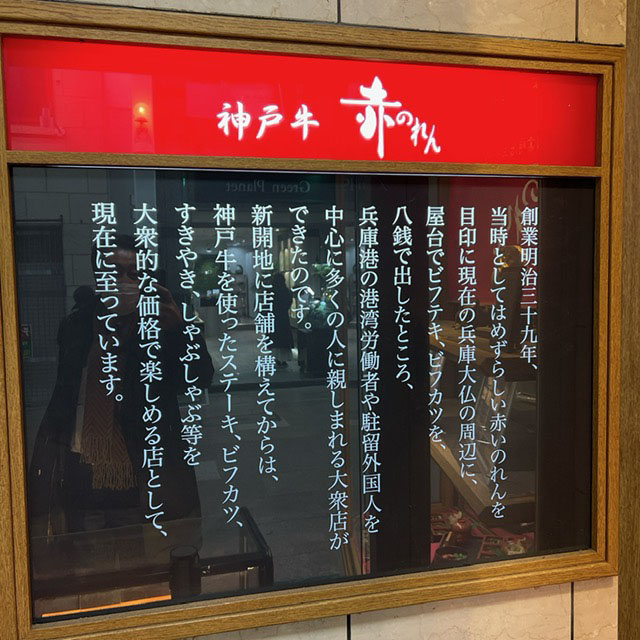 神戸牛 赤のれん
創業明治三十九年、
当時としてはめずらしい赤いのれんを
目印に現在の兵庫大仏の周辺に、
屋台でビフテキ、ビフカツを、
八銭で出したところ、
兵庫港の港湾労働者や駐留外国人を
中心に多くの人に親しまれる大衆店が
できたのです。
新開地に店舗を構えてからは、
神戸牛を使ったステーキ、ビフカツ、
すきやき、しゃぶしゃぶ等を
大衆的な価格で楽しめる店として、
現在に至っています。
Green Planet